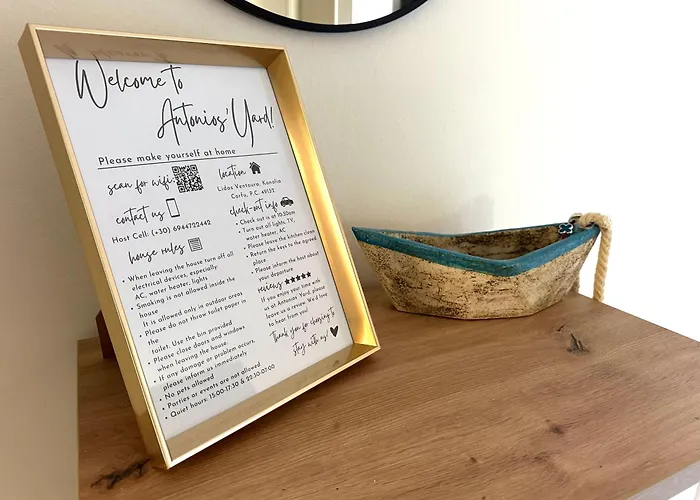 Welcome to
Antonios' Yard!
Please make yourself at home
scan for wifi:
contact us
Host Cell: (+30) 6944722442
house rules
• When leaving the house turn off all
electrical devices, especially:
AC, water heater, lights
• Smoking is not allowed inside the
house
It is allowed only in outdoor areas
• Please do not throw toilet paper in
the
toilet. Use the bin provided
• Please close doors and windows
when leaving the house.
• If any damage or problem occurs,
please inform us immediately
• No pets allowed
• Parties or events are not allowed
• Quiet hours: 15:00-17:30 & 22:30-07:00
location
Lidos Ventoura, Kanalia
Corfu, P.C. 49132
check-out info
• Check out is at 10:30am
• Turn out all lights, TV,
water heater, AC
• Please leave the kitchen clean
• Return the keys to the agreed
place
• Please inform the host about
your departure
reviews
If you enjoy your time with
us at Antonios Yard, please
leave us a review. We'd love
to hear from you!
Thank you for choosing to
stay with us!